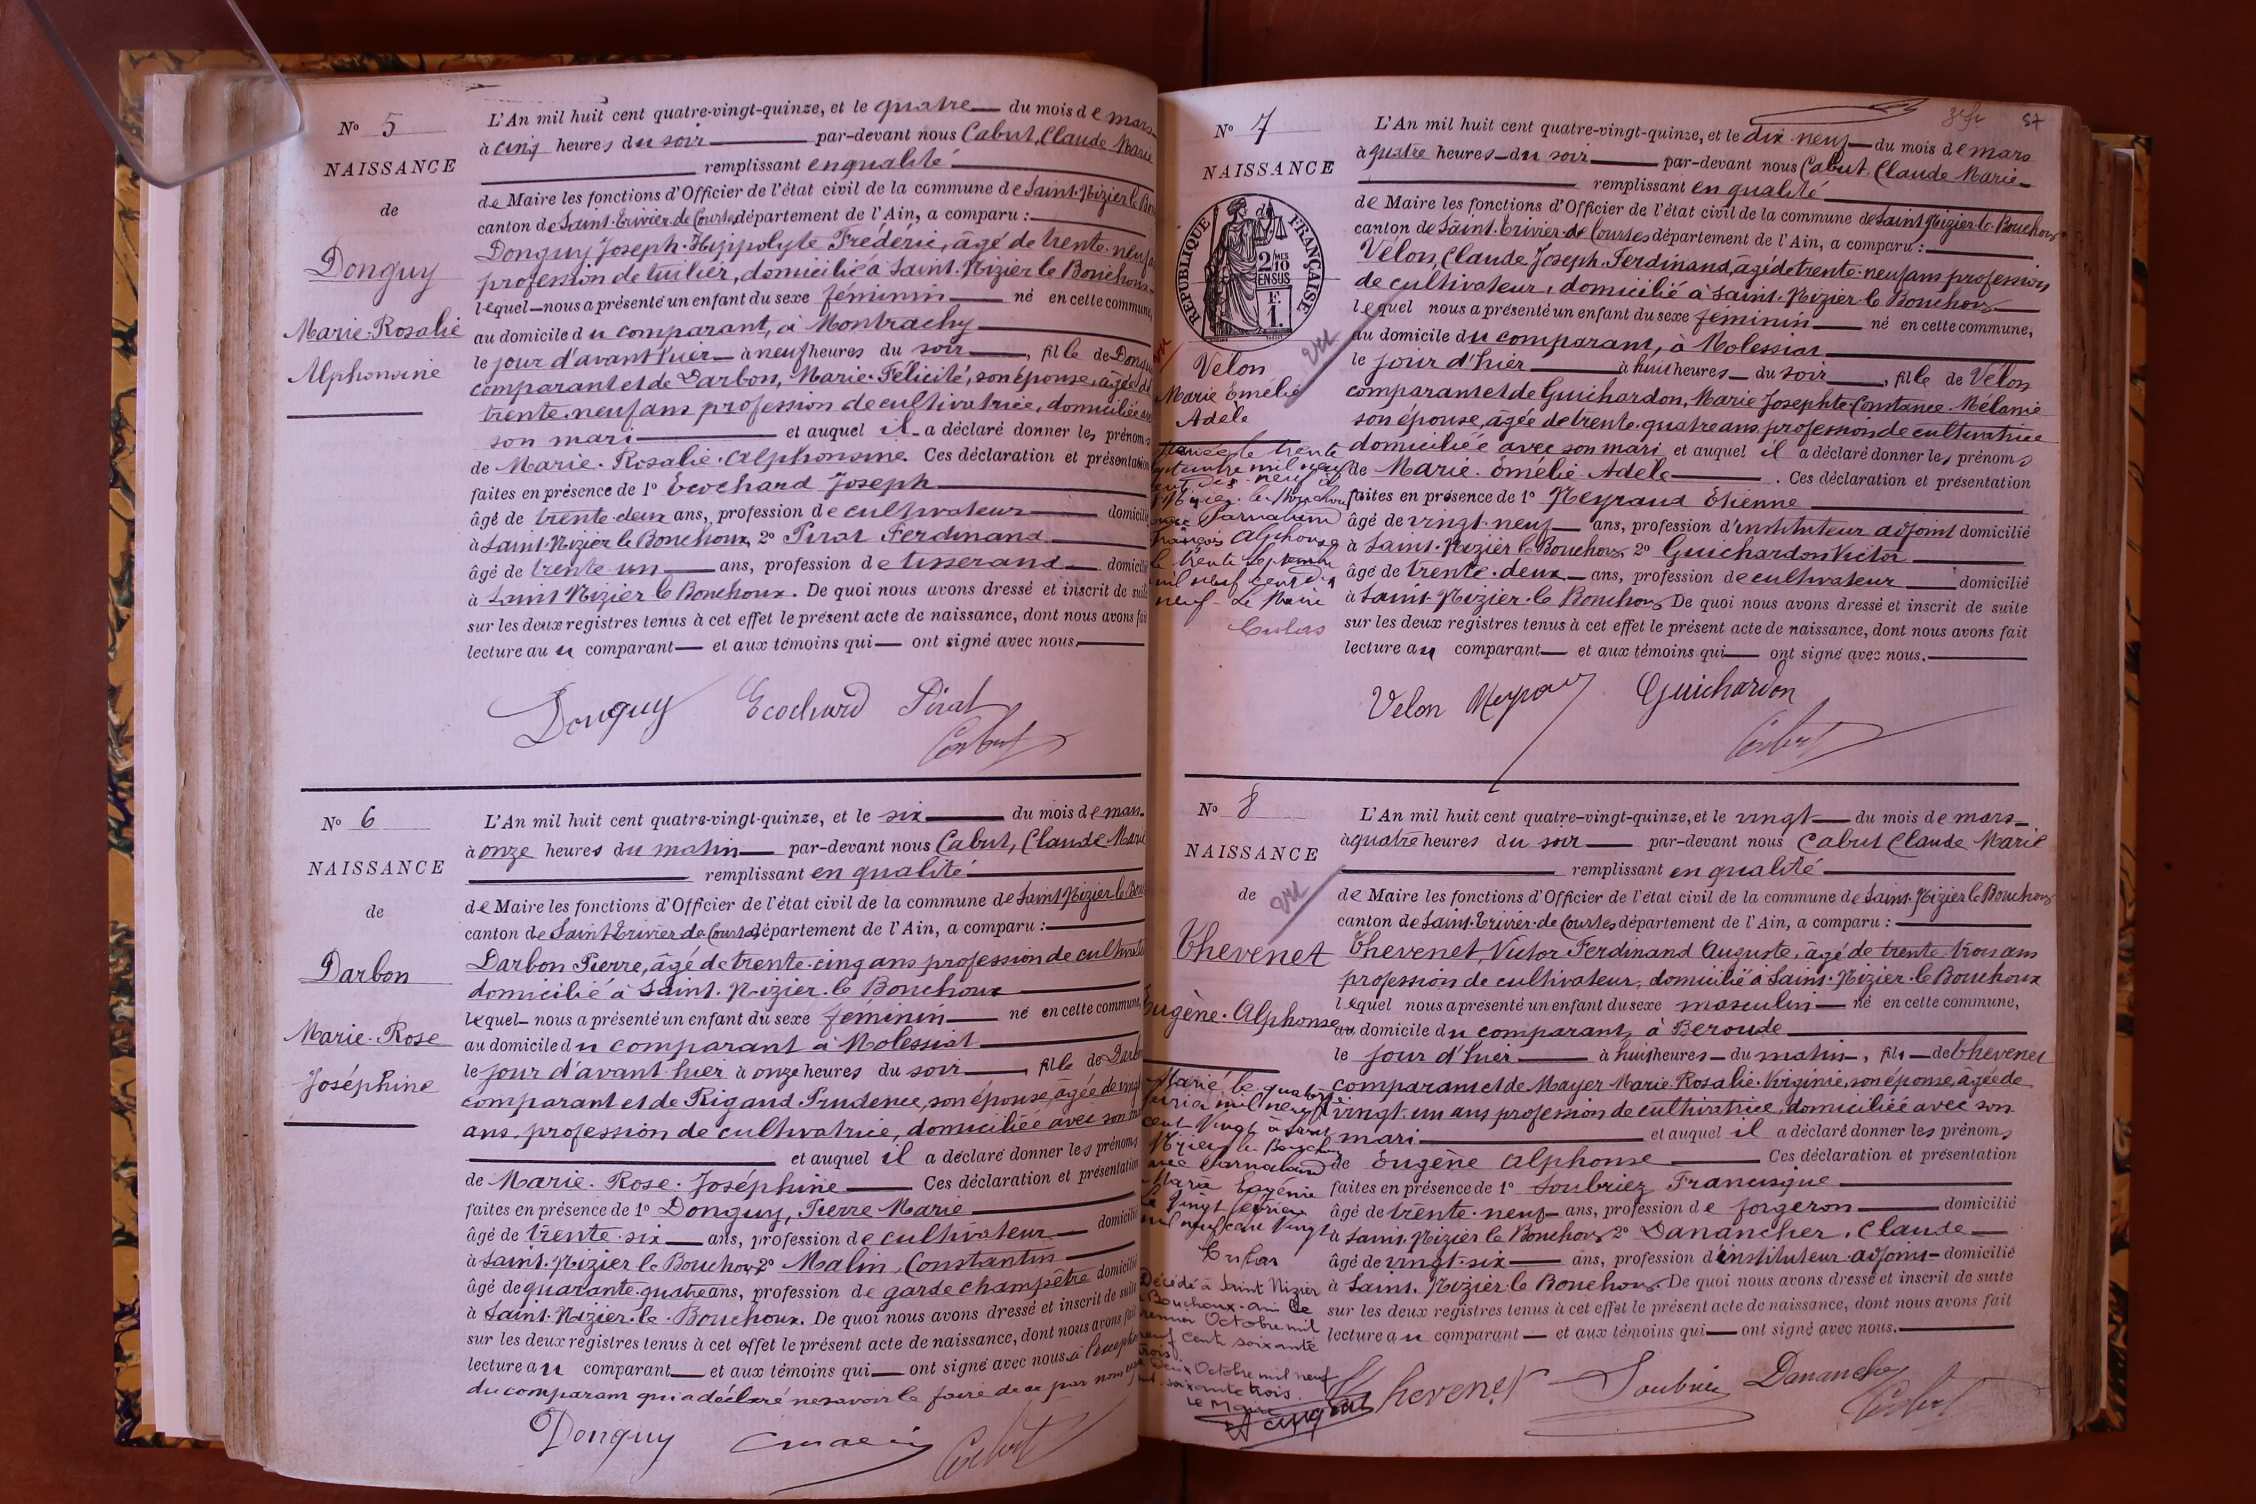 N° 5
NAISSANCE
de
Donguy
Marie-Rosalie
Alphonsine
L'An mil huit cent quatre-vingt-quinze, et le quatre du mois de mars
à cinq heures du soir par-devant nous Cabut, Claude Marie
remplissant en qualité
de Maire les fonctions d'Officier de l'état civil de la commune de Saint-Nizier le Bou
canton de Saint-Trivier-de Courtes département de l'Ain, a comparu :
Donguy Joseph-Hyppolyte Frédéric, âgé de trente-neuf
profession de tuilier, domicilié à Saint-Nizier le Bouchoux
lequel nous a présenté un enfant du sexe féminin né en cette commune,
au domicile du comparant, à Montrachy
le jour d'avant hier à neuf heures du soir, fille de Donguy
comparant et de Darbon, Marie-Félicité, son épouse, âgée de
trente-neuf ans profession de cultivatrice, domiciliée avec
son mari et auquel il a déclaré donner les prénoms
de Marie-Rosalie-Alphonsine. Ces déclaration et présentation
faites en présence de 1° Ecochard Joseph
âgé de trente-deux ans, profession de cultivateur domicilié
à Saint-Nizier le Bouchoux, 2° Pirat Ferdinand
âgé de trente-un ans, profession de tisserand domicilié
à Saint Nizier le Bouchoux. De quoi nous avons dressé et inscrit de suite
sur les deux registres tenus à cet effet le présent acte de naissance, dont nous avons fait
lecture au comparant et aux témoins qui ont signé avec nous.
Donguy Ecochard Pirat
Cabut
N° 6
NAISSANCE
de
Darbon
Marie-Rose
Joséphine
L'An mil huit cent quatre-vingt-quinze, et le six du mois de mars
à onze heures du matin par-devant nous Cabut, Claude-Marie
remplissant en qualité
de Maire les fonctions d'Officier de l'état civil de la commune de Saint Nizier le Bou
canton de Saint-Trivier-de-Courtes département de l'Ain, a comparu :
Darbon Pierre, âgé de trente-cinq ans profession de cultivateur
domicilié à Saint-Nizier-le Bouchoux
lequel nous a présenté un enfant du sexe féminin né en cette commune,
au domicile du comparant à Molessiat
le jour d'avant-hier à onze heures du soir, fille de Darbon
comparant et de Rigaud Prudence, son épouse, âgée de vingt
ans, profession de cultivatrice, domiciliée avec son mari
et auquel il a déclaré donner les prénoms
de Marie-Rose-Joséphine Ces déclaration et présentation
faites en présence de 1° Donguy, Pierre Marie
âgé de trente-six ans, profession de cultivateur domicilié
à Saint-Nizier le Bouchoux 2° Malin, Constantin
âgé de quarante-quatre ans, profession de garde champêtre domicilié
à Saint-Nizier-le-Bouchoux. De quoi nous avons dressé et inscrit de suite
sur les deux registres tenus à cet effet le présent acte de naissance, dont nous avons fait
lecture au comparant et aux témoins qui ont signé avec nous à l'exception
du comparant qui a déclaré ne savoir le faire de ce par nous
Donguy Cabut
57
N° 7
NAISSANCE
de
RÉPUBLIQUE FRANÇAISE
2/10 EN SUS
F. 1.
vu
Velon
Marie Emélie
Adèle
Mariée le trente
septembre mil neuf
cent dix-neuf à
St Nizier-le Bouchoux
avec Parnaland
François Alphonse
le trente Septembre
mil neuf cent dix
neuf Le Maire
L'An mil huit cent quatre-vingt-quinze, et le dix-neuf du mois de mars
à quatre heures du soir par-devant nous Cabut Claude Marie
remplissant en qualité
de Maire les fonctions d'Officier de l'état civil de la commune de Saint Nizier-le-Bouchoux
canton de Saint-Trivier-de Courtes département de l'Ain, a comparu :
Velon, Claude Joseph-Ferdinand, âgé de trente-neuf ans profession
de cultivateur, domicilié à Saint-Nizier-le Bouchoux
lequel nous a présenté un enfant du sexe féminin né en cette commune,
au domicile du comparant, à Molessiat
le jour d'hier à huit heures du soir, fille de Velon
comparant et de Guichardon, Marie Josephte Constance-Mélanie
son épouse, âgée de trente-quatre ans, profession de cultivatrice
domiciliée avec son mari et auquel il a déclaré donner les prénoms
de Marie-Emélie-Adèle. Ces déclaration et présentation
faites en présence de 1° Neyraud Etienne
âgé de vingt-neuf ans, profession d'instituteur adjoint domicilié
à Saint-Nizier le Bouchoux, 2° Guichardon Victor
âgé de trente-deux ans, profession de cultivateur domicilié
à Saint-Nizier-le Bouchoux De quoi nous avons dressé et inscrit de suite
sur les deux registres tenus à cet effet le présent acte de naissance, dont nous avons fait
lecture au comparant et aux témoins qui ont signé avec nous.
Velon Guichardon
Cabut
N° 8
NAISSANCE
de
vu
Thevenet
Eugène-Alphonse
Marié le quatorze
février mil neuf
cent vingt à Saint
Nizier le Bouchoux
avec Parnaland
Marie Eugénie
le vingt février
mil neuf cent vingt
Décédé à Saint Nizier
le Bouchoux-Ain le
premier Octobre mil
neuf cent soixante
trois.
deux Octobre mil neuf
cent soixante trois.
Le Maire
L'An mil huit cent quatre-vingt-quinze, et le vingt du mois de mars
à quatre heures du soir par-devant nous Cabut Claude Marie
remplissant en qualité
de Maire les fonctions d'Officier de l'état civil de la commune de Saint-Nizier le Bouchoux
canton de Saint-Trivier-de Courtes département de l'Ain, a comparu :
Thevenet, Victor Ferdinand Auguste, âgé de trente-trois ans
profession de cultivateur, domicilié à Saint-Nizier-le Bouchoux
lequel nous a présenté un enfant du sexe masculin né en cette commune,
au domicile du comparant, à Beroude
le jour d'hier à huit heures du matin, fils de Thevenet
comparant et de Mayer Marie-Rosalie-Virginie, son épouse, âgée de
vingt-un ans profession de cultivatrice, domiciliée avec son
mari et auquel il a déclaré donner les prénoms
de Eugène Alphonse Ces déclaration et présentation
faites en présence de 1° Soubriez Francisque
âgé de trente-neuf ans, profession de forgeron domicilié
à Saint-Nizier le Bouchoux 2° Danancher, Claude
âgé de vingt-six ans, profession d'instituteur-adjoint domicilié
à Saint-Nizier-le Bouchoux. De quoi nous avons dressé et inscrit de suite
sur les deux registres tenus à cet effet le présent acte de naissance, dont nous avons fait
lecture au comparant et aux témoins qui ont signé avec nous.
Thevenet Soubriez Danancher
Cabut